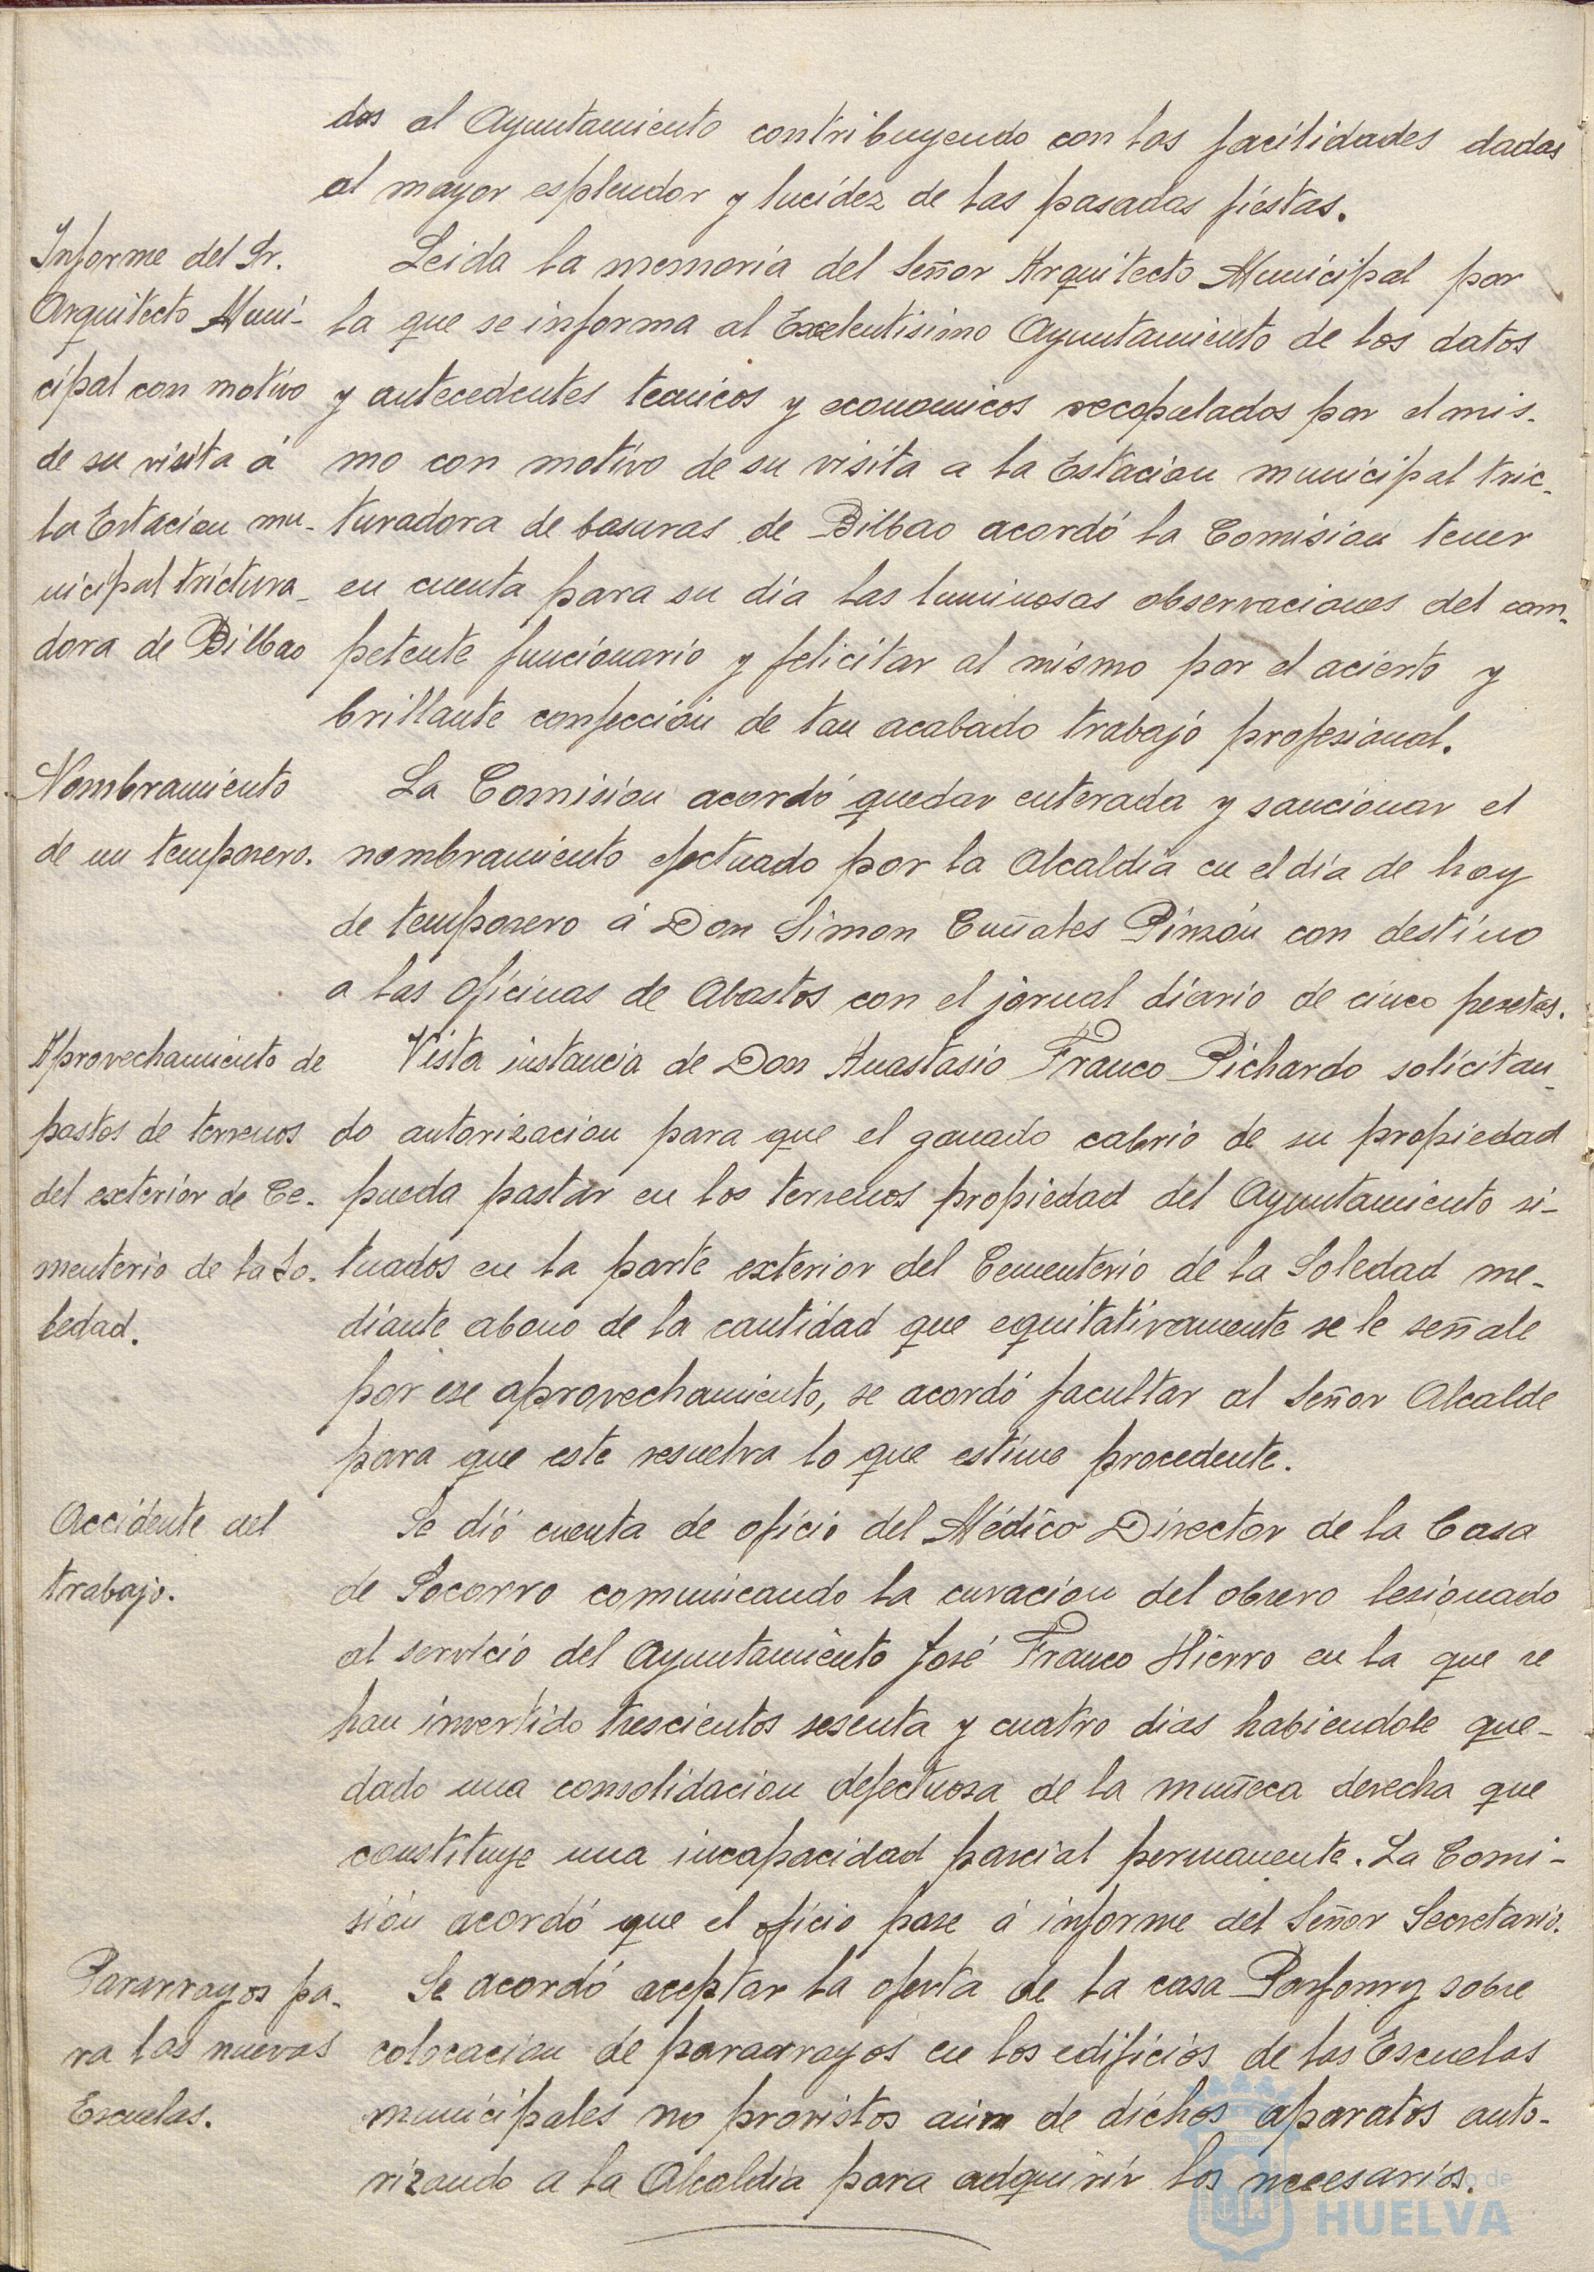 dos al Ayuntamiento contribuyendo con las facilidades dadas
al mayor esplendor y lucidez de las pasadas fiestas.
Informe del Sr.
Arquitecto Muni-
cipal con motivo
de su visita á
la Estacion mu-
nicipal trictura-
dora de Bilbao
Leida la memoria del Señor Arquitecto Municipal por
la que se informa al Exelentisimo Ayuntamiento de los datos
y antecedentes tecnicos y economicos recopelados por el mis-
mo con motivo de su visita a la Estacion municipal tric-
turadora de basuras de Bilbao acordó la Comision tener
en cuenta para su día las luminosas observaciones del com-
petente funcionario y felicitar al mismo por el acierto y
brillante confección de tan acabado trabajo profesional.
Nombramiento
de un temporero.
La Comisión acordó quedar enterada y sancionar el
nombramiento efectuado por la Alcaldía en el día de hoy
de temporero á Don Simon Cuñales Pinzón con destino
a las oficinas de Abastos con el jornal diario de cinco pesetas.
Aprovechamiento de
pastos de terrenos
del exterior de Ce-
menterio de la So-
ledad.
Vista instancia de Don Anastasio Franco Pichardo solicitan-
do autorizacion para que el ganado cabrio de su propiedad
pueda pastar en los terrenos propiedad del Ayuntamiento si-
tuados en la parte exterior del Cementerio de la Soledad me-
diante abono de la cantidad que equitativamente se le señale
por ese aprovechamiento, se acordó facultar al Señor Alcalde
para que este resuelva lo que estime procedente.
Accidente del
trabajo.
Se dió cuenta de oficio del Médico Director de la Casa
de Socorro comunicando la curacion del obrero lesionado
al servicio del Ayuntamiento José Franco Hierro en la que se
han invertido trescientos sesenta y cuatro dias habiendole que-
dado una consolidacion defectuosa de la muñeca derecha que
constituye una incapacidad parcial permanente. La Comi-
sión acordó que el oficio pase á informe del Señor Secretario.
Pararrayos pa-
ra las nuevas
Escuelas.
Se acordó aceptar la oferta de la casa sobre
colocacion de pararrayos en los edificios de las Escuelas
municipales no provistos aún de dichos aparatos auto-
rizando a la Alcaldia para adquirir los necesarios.
HUELVA